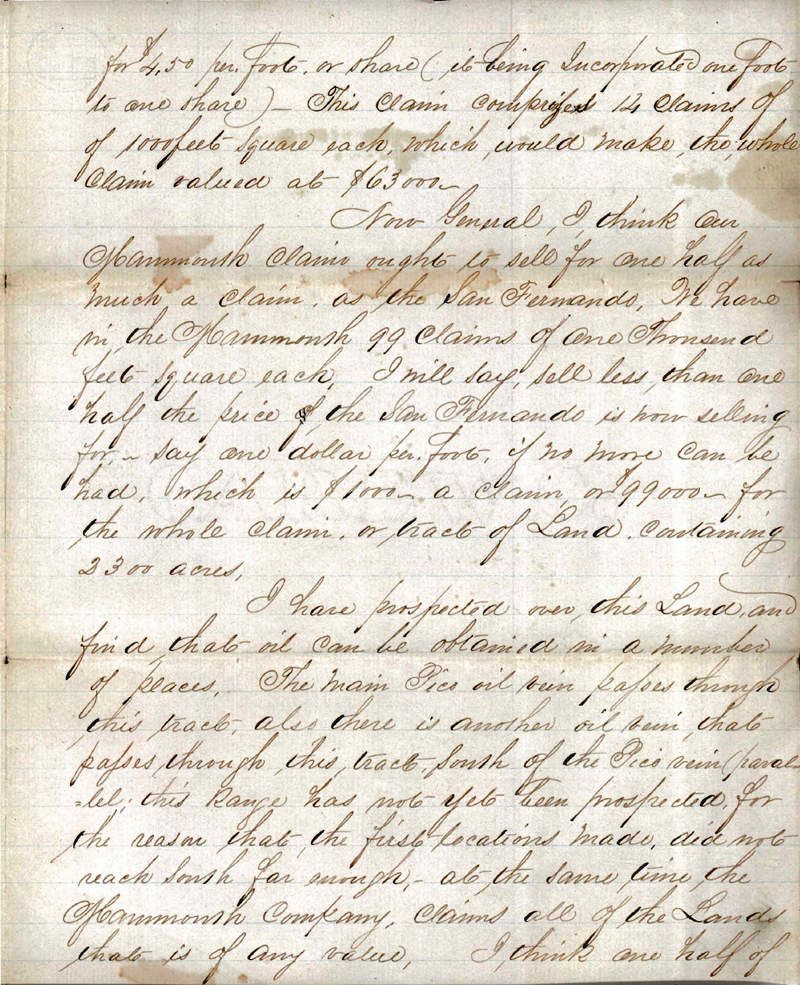 for $4,50 per. foot. or share (it being Incorporated one foot
to one share) – This claim comprises 14 claims of
of 1000 feet square each, which, would make, the, whole
Claim valued at $63000–
Now General, I, think our
Mammouth claim ought to sell for one half as
much a claim. as the San Fernando, We have
in, the Mammouth 99 Claims of One Thousend
feet square each, I will say, sell less, than one
half the price of, the San Fernando is now selling
for, – say one dollar per, foot, if no more can be
had, which is $1000– a claim, or $99000– for
the whole claim. or tract of Land. containing
2300 acres,
I have prospected over, this Land, and
find, that oil can be obtained in a number
of places, The main Pico oil vein passes through
this tract, also there is another oil vein, that
passes, through, this, tract, South of the Pico vein (paral-
=lel; this Range has not yet been prospected, for
the reason that, the first locations made, did not
reach South far enough, – at, the same time, the
Mammouth Company, claims all of the Lands
that is of any value, I, think one half of